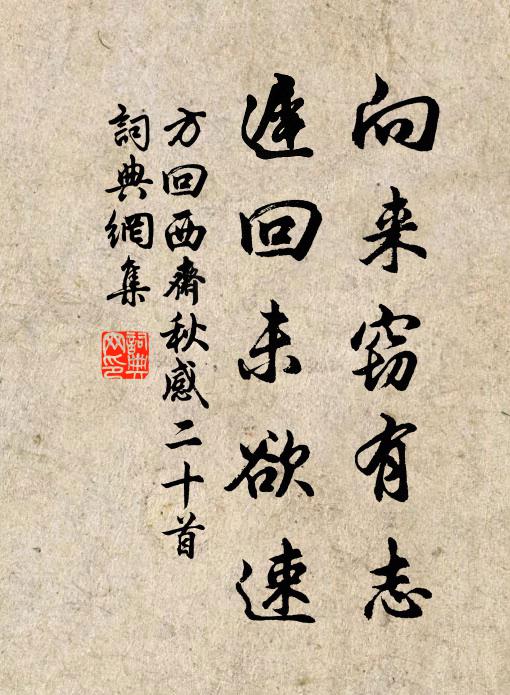 向来窃有志
遲回未欲速
方回西齋秋感二十首
詞典網集
詞典网印